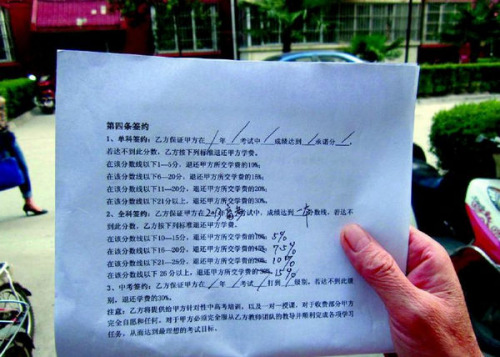 第四条签约
1、单科签约：乙方保证甲方在 / 年 / 考试中 / 成绩达到 / 承诺分 / ，
若达不到此分数，乙方按下列标准退还甲方学费。
在该分数线以下1—5分，退还甲方所交学费的10%；
在该分数线以下6—20分，退还甲方所交学费的15%；
在该分数线以下11—20分，退还甲方所交学费的20%；
在该分数线以下21分以上，退还甲方所交学费的30%；
2、全科签约：乙方保证甲方在 考试中，成绩达到一本分数线，若达不
到此分数，乙方按下列标准退还甲方学费。
在该分数线以下10—15分，退还甲方所交学费的 5%
在该分数线以下16—20分，退还甲方所交学费的 7.5%
在该分数线以下21—25分，退还甲方所交学费的 10%
在该分数线以下 26 分以上，退还甲方所交学费的 15%
3、中考签约：乙方保证甲方在 / 年 / 考试 / 打到 / 级别，若达不到此级
别，退还学费的30%。
注意：乙方将提供给甲方针对性中高考培训，以及一对一授课，对于收费部分甲方
完全自愿和任何，对于甲方必须完全服从乙方教师团队的教导并顺利完成各项学习
任务，从而达到最理想的考试目标。